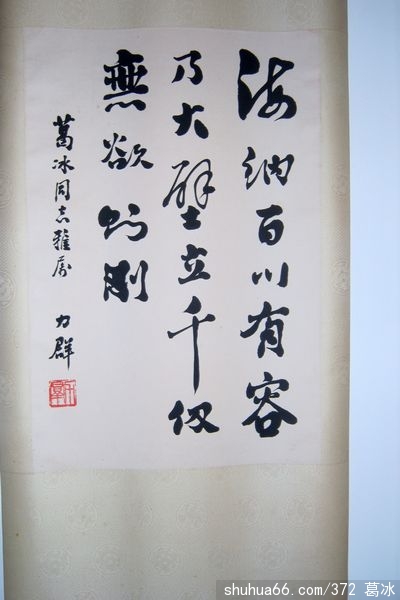 海納百川有容
乃大壁立千仞
無欲則剛
葛冰同志雅属
力群
shuhua66.com/372 葛冰